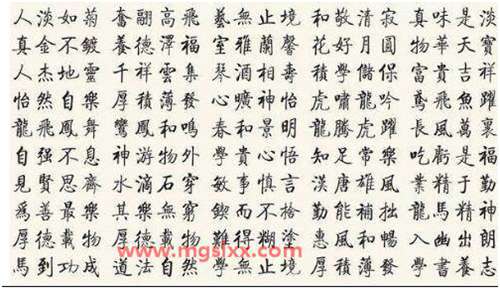 人淡如菊 奮翮高飛 藝無止境 和敬清寂 真味是淡
真金不鍍 養德澤福 室雅蘭馨 花好月圓 物華天寶
人杰地靈 千祥雲集 琴酒相壽 積學儲保 富貴吉祥
怡然自樂 厚積薄發 心曠神怡 虎嘯龍吟 鳶飛魚躍
龍飛鳳舞 鸞鳳和鳴 春和景明 龍騰虎躍 長風萬裏
自强不息 神游物外 學貴心悟 知足常樂 吃虧是福
見賢思齊 水滴石穿 敏事慎言 漢唐雄風 業精于勤
爲善最樂 其樂無窮 鍥而不捨 勤能補拙 龍馬精神
厚德載物 難得糊塗 惠風和暢 入幽出朗
馬到功成 道法自然 學無止境 厚積薄發 學養志
www.mgslxx.com